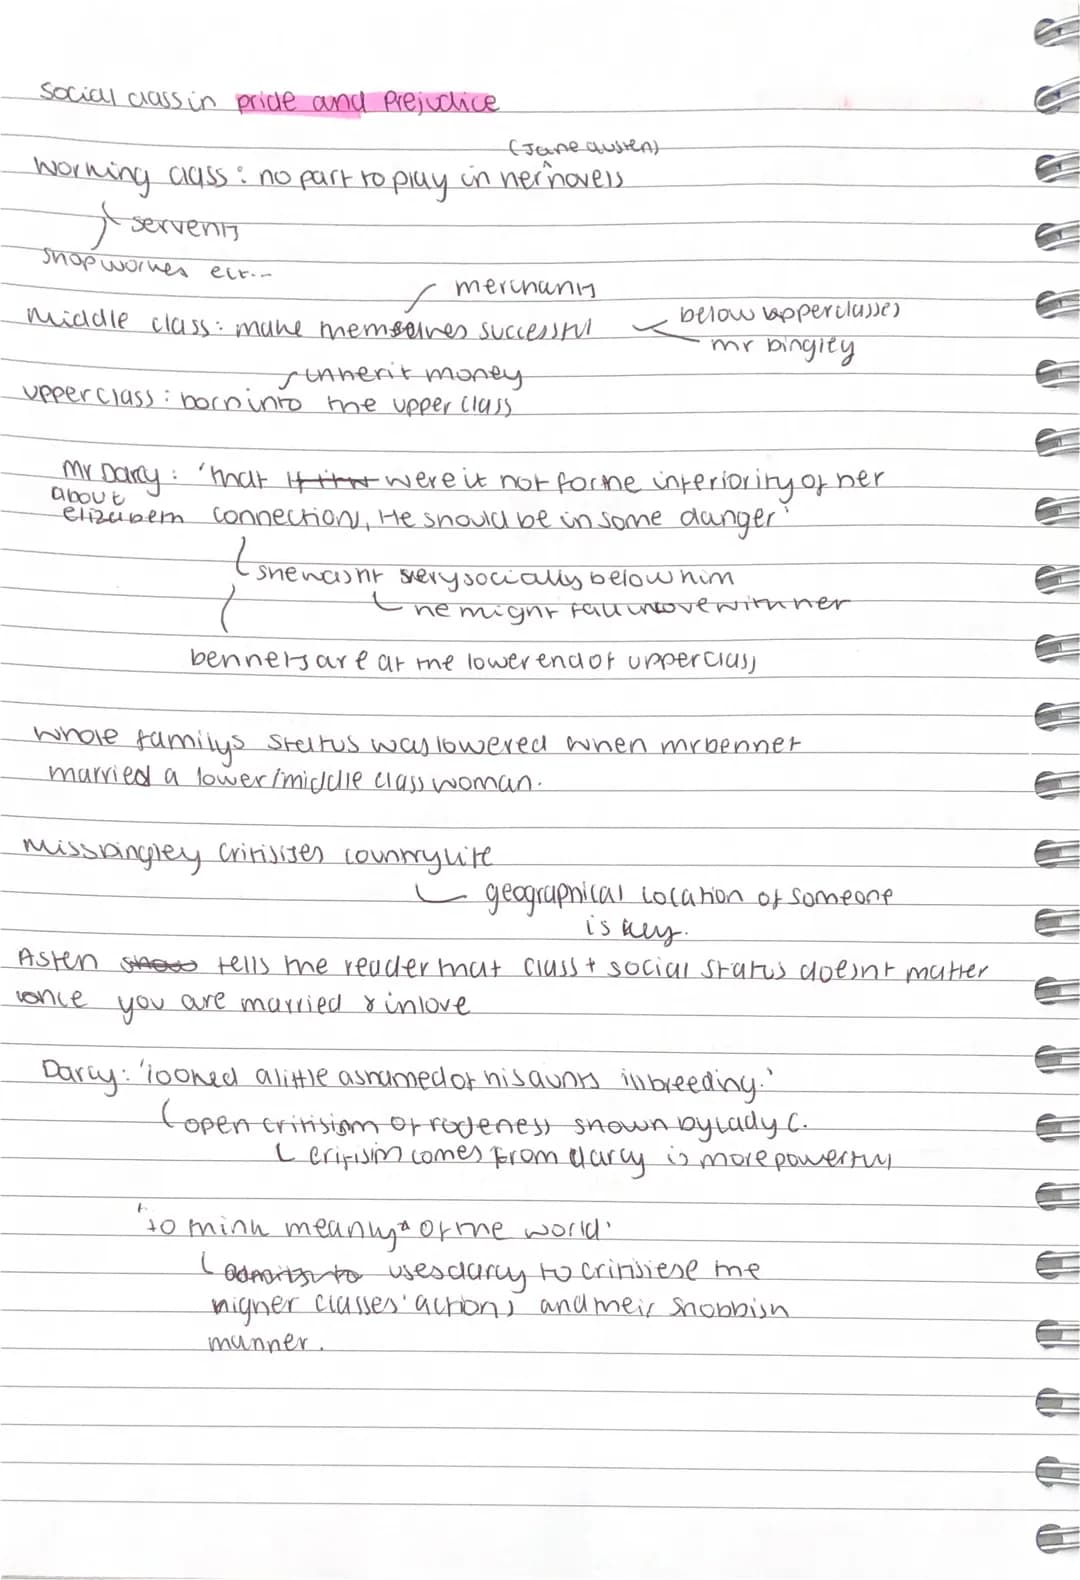 Social class in pride and Prejudice
(Jane austen)
Working class: no part to play in her^novels
servents
shop workes ect...
merchants
Middle class: make themselves successful
below upperclasses
mr bingley
inherit money
upper class: born into the upper class
Mr Darcy: 'that were it not for the inferiority of her
about
elizabeth connection, He should be in some danger'
she wasnt very socially below him
he might fall in love with her
bennets are at the lower end of upper class
whole familys status was lowered when mr bennet
married a lower/middle class woman.
Miss bingley Critisises country life
geographical location of someone
is key.
Asten shows tells the reader that class + social status doesnt matter
once you are married & in love
Darcy: 'looked a little ashamed of his aunts ill breeding.'
open critisism of rudeness shown by Lady C.
critisim comes from darcy is more powerful
'to think meanly of the world'
admits to uses darcy to critisiese the
higher classes' actions and their snobbish
manner.